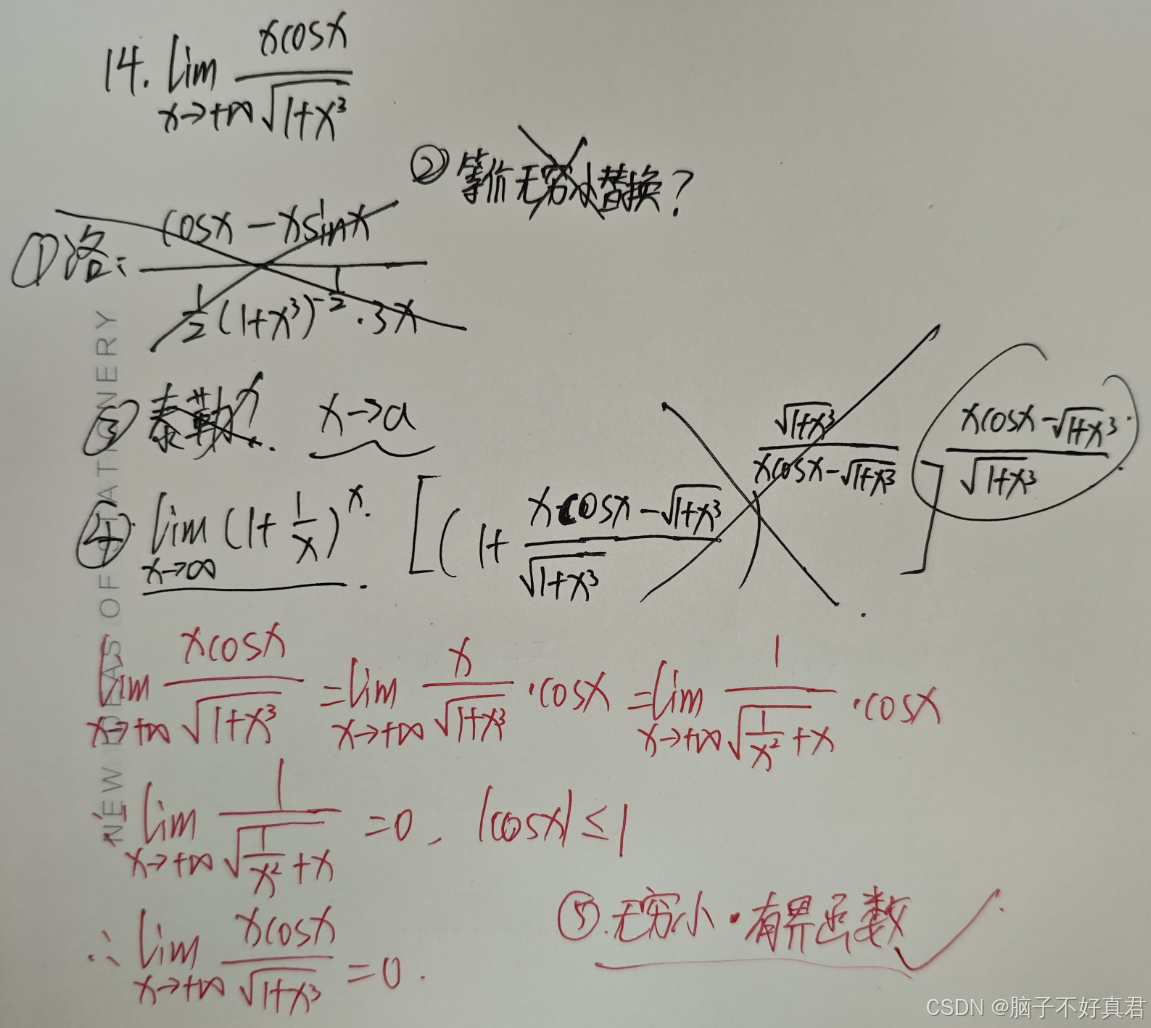 14. lim x→+∞ xcosx / √(1+x³)
② 等价无穷小替换?
① 洛: (cosx - xsinx) / (½(1+x³)^(-½)·3x)
③ 泰勒? x→a
④. lim x→∞ (1+1/x)^x. [(1+ (xcosx-√(1+x³)) / √(1+x³))^(√(1+x³) / (xcosx-√(1+x³)))]^((xcosx-√(1+x³)) / √(1+x³))
lim x→+∞ xcosx / √(1+x³) = lim x→+∞ x / √(1+x³) ·cosx = lim x→+∞ 1 / √(1/x²+x) ·cosx
∵ lim x→+∞ 1 / √(1/x²+x) =0, |cosx|≤1
⑤.无穷小·有界函数
∴ lim x→+∞ xcosx / √(1+x³) =0.
CSDN @脑子不好真君